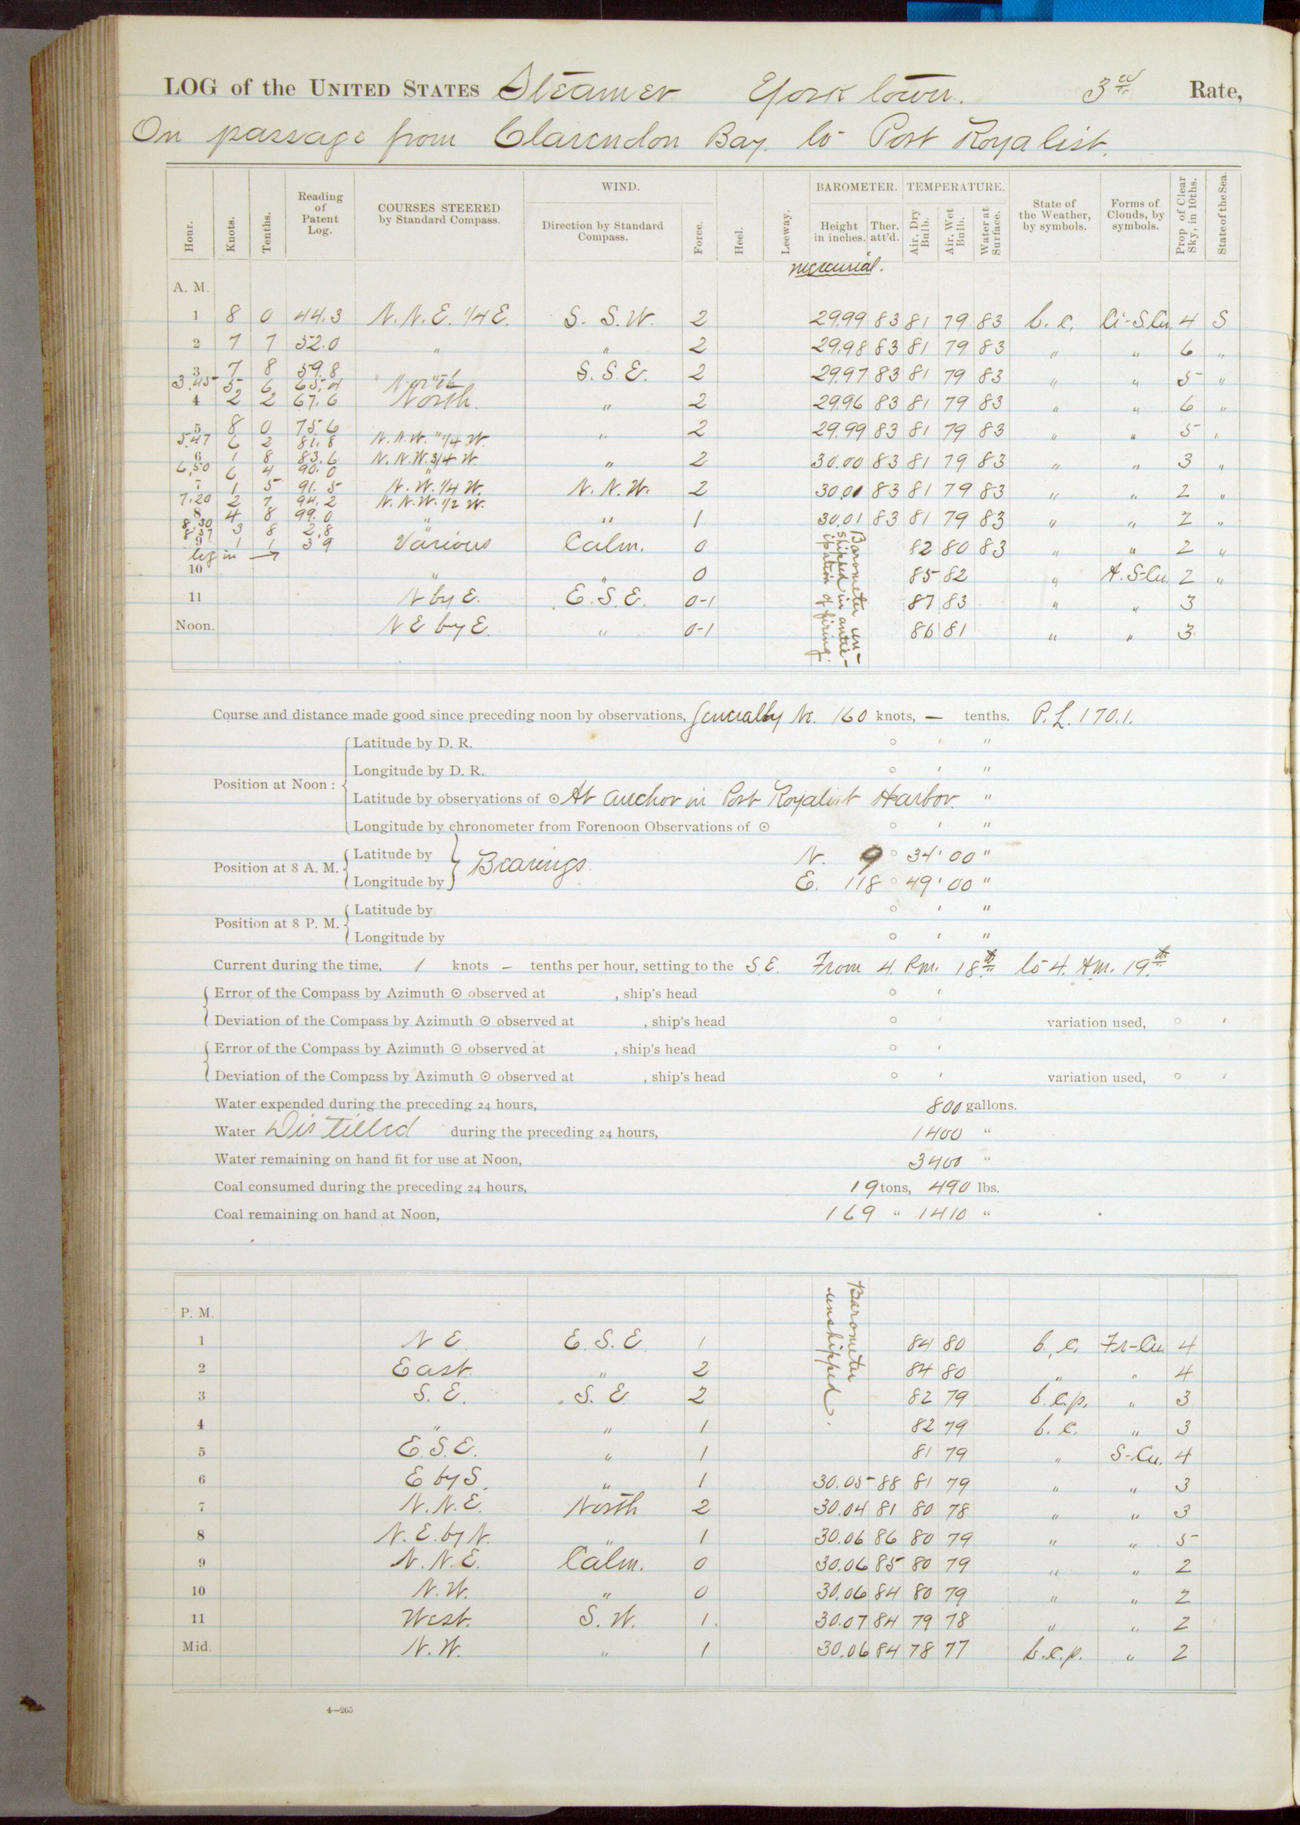 LOG of the UNITED STATES Steamer Yorktown. 3rd Rate,
On passage from Clarendon Bay to Port Royalist.
Hour. Knots. Tenths. Reading of Patent Log. COURSES STEERED by Standard Compass. WIND. Direction by Standard Compass. Force. Heel. Leeway. BAROMETER. Height in inches. Ther. att'd. TEMPERATURE. Air, Dry Bulb. Air, Wet Bulb. Water at Surface. State of the Weather, by symbols. Forms of Clouds, by symbols. Prop of Clear Sky, in 10ths. State of the Sea.
mercurial.
A. M.
1 8 0 44.3 N.N.E. 1/4 E. S.S.W. 2 29.99 83 81 79 83 b.c. Ci-S.Cu. 4 S
2 7 7 52.0 " " 2 29.98 83 81 79 83 " " 6 "
3 7 8 59.8 " S.S.E. 2 29.97 83 81 79 83 " " 5 "
3.45 5 6 65.4 North
4 2 2 67.6 North. " 2 29.96 83 81 79 83 " " 6 "
5 8 0 75.6 " " 2 29.99 83 81 79 83 " " 5 "
5.47 6 2 81.8 N.N.W. 1/4 W.
6 1 8 83.6 N.N.W. 3/4 W. " 2 30.00 83 81 79 83 " " 3 "
6.50 6 4 90.0 "
7 1 5 91.5 N.W. 1/4 W. N.N.W. 2 30.01 83 81 79 83 " " 2 "
7.20 2 7 94.2 N.N.W. 1/2 W.
8 4 8 99.0 " " 1 30.01 83 81 79 83 " " 2 "
8.30 3 8 2.8 "
8.37
9 1 1 3.9 Various Calm. 0 82 80 83 " " 2 "
log in →
10 " " 0 85 82 " A.S-Cu. 2 "
11 N by E. E.S.E. 0-1 87 83 " " 3
Noon. NE by E. " 0-1 86 81 " " 3
Barometer un-
shipped in antic-
ipation of firing.
Course and distance made good since preceding noon by observations, Generally N. 160 knots, — tenths. P.L. 170.1.
Position at Noon: Latitude by D. R. ° ' "
Longitude by D. R. ° ' "
Latitude by observations of ☉ At anchor in Port Royalist Harbor. "
Longitude by chronometer from Forenoon Observations of ☉ ° ' "
Position at 8 A. M. Latitude by Bearings. N. 9° 34' 00"
Longitude by E. 118° 49' 00"
Position at 8 P. M. Latitude by ° ' "
Longitude by ° ' "
Current during the time, 1 knots — tenths per hour, setting to the S.E. From 4 P.m. 18th to 4 A.m. 19th
Error of the Compass by Azimuth ☉ observed at , ship's head ° '
Deviation of the Compass by Azimuth ☉ observed at , ship's head ° ' variation used, ° '
Error of the Compass by Azimuth ☉ observed at , ship's head ° '
Deviation of the Compass by Azimuth ☉ observed at , ship's head ° ' variation used, ° '
Water expended during the preceding 24 hours, 800 gallons.
Water Distilled during the preceding 24 hours, 1400 "
Water remaining on hand fit for use at Noon, 3400 "
Coal consumed during the preceding 24 hours, 19 tons, 490 lbs.
Coal remaining on hand at Noon, 169 " 1410 "
P. M.
Barometer
unshipped.
1 NE E.S.E 1 84 80 b.c. Fr-Cu. 4
2 East " 2 84 80 " " 4
3 S.E. S.E. 2 82 79 b.c.p. " 3
4 " " 1 82 79 b.c. " 3
5 E.S.E. " 1 81 79 " S-Cu. 4
6 E by S. " 1 30.05 88 81 79 " " 3
7 N.N.E. North 2 30.04 81 80 78 " " 3
8 N.E. by N. " 1 30.06 86 80 79 " " 5
9 N.N.E. Calm. 0 30.06 85 80 79 " " 2
10 N.W. " 0 30.06 84 80 79 " " 2
11 West. S.W. 1. 30.07 84 79 78 " " 2
Mid. N.W. " 1 30.06 84 78 77 b.c.p. " 2
4—265